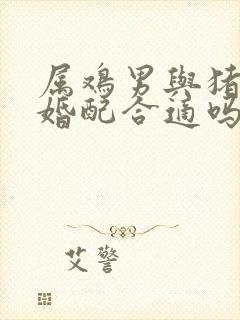 属鸡男與猪
婚配合適吗
艾警